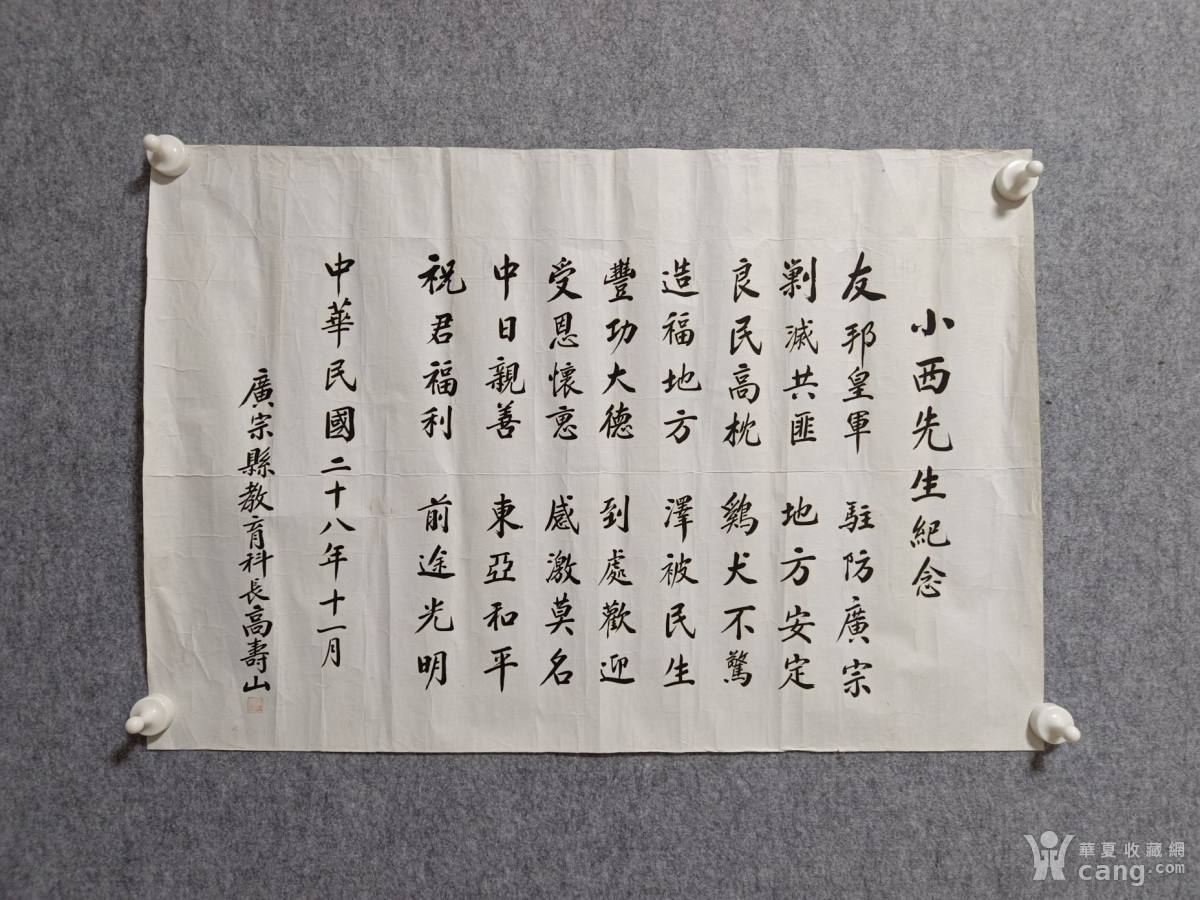 小西先生紀念
友邦皇軍 駐防廣宗
剿滅共匪 地方安定
良民高枕 鷄犬不驚
造福地方 澤被民生
豐功大德 到處歡迎
受恩懷惠 感激莫名
中日親善 東亞和平
祝君福利 前途光明
中華民國二十八年十一月
廣宗縣教育科長高壽山
華夏收藏網
cang.com